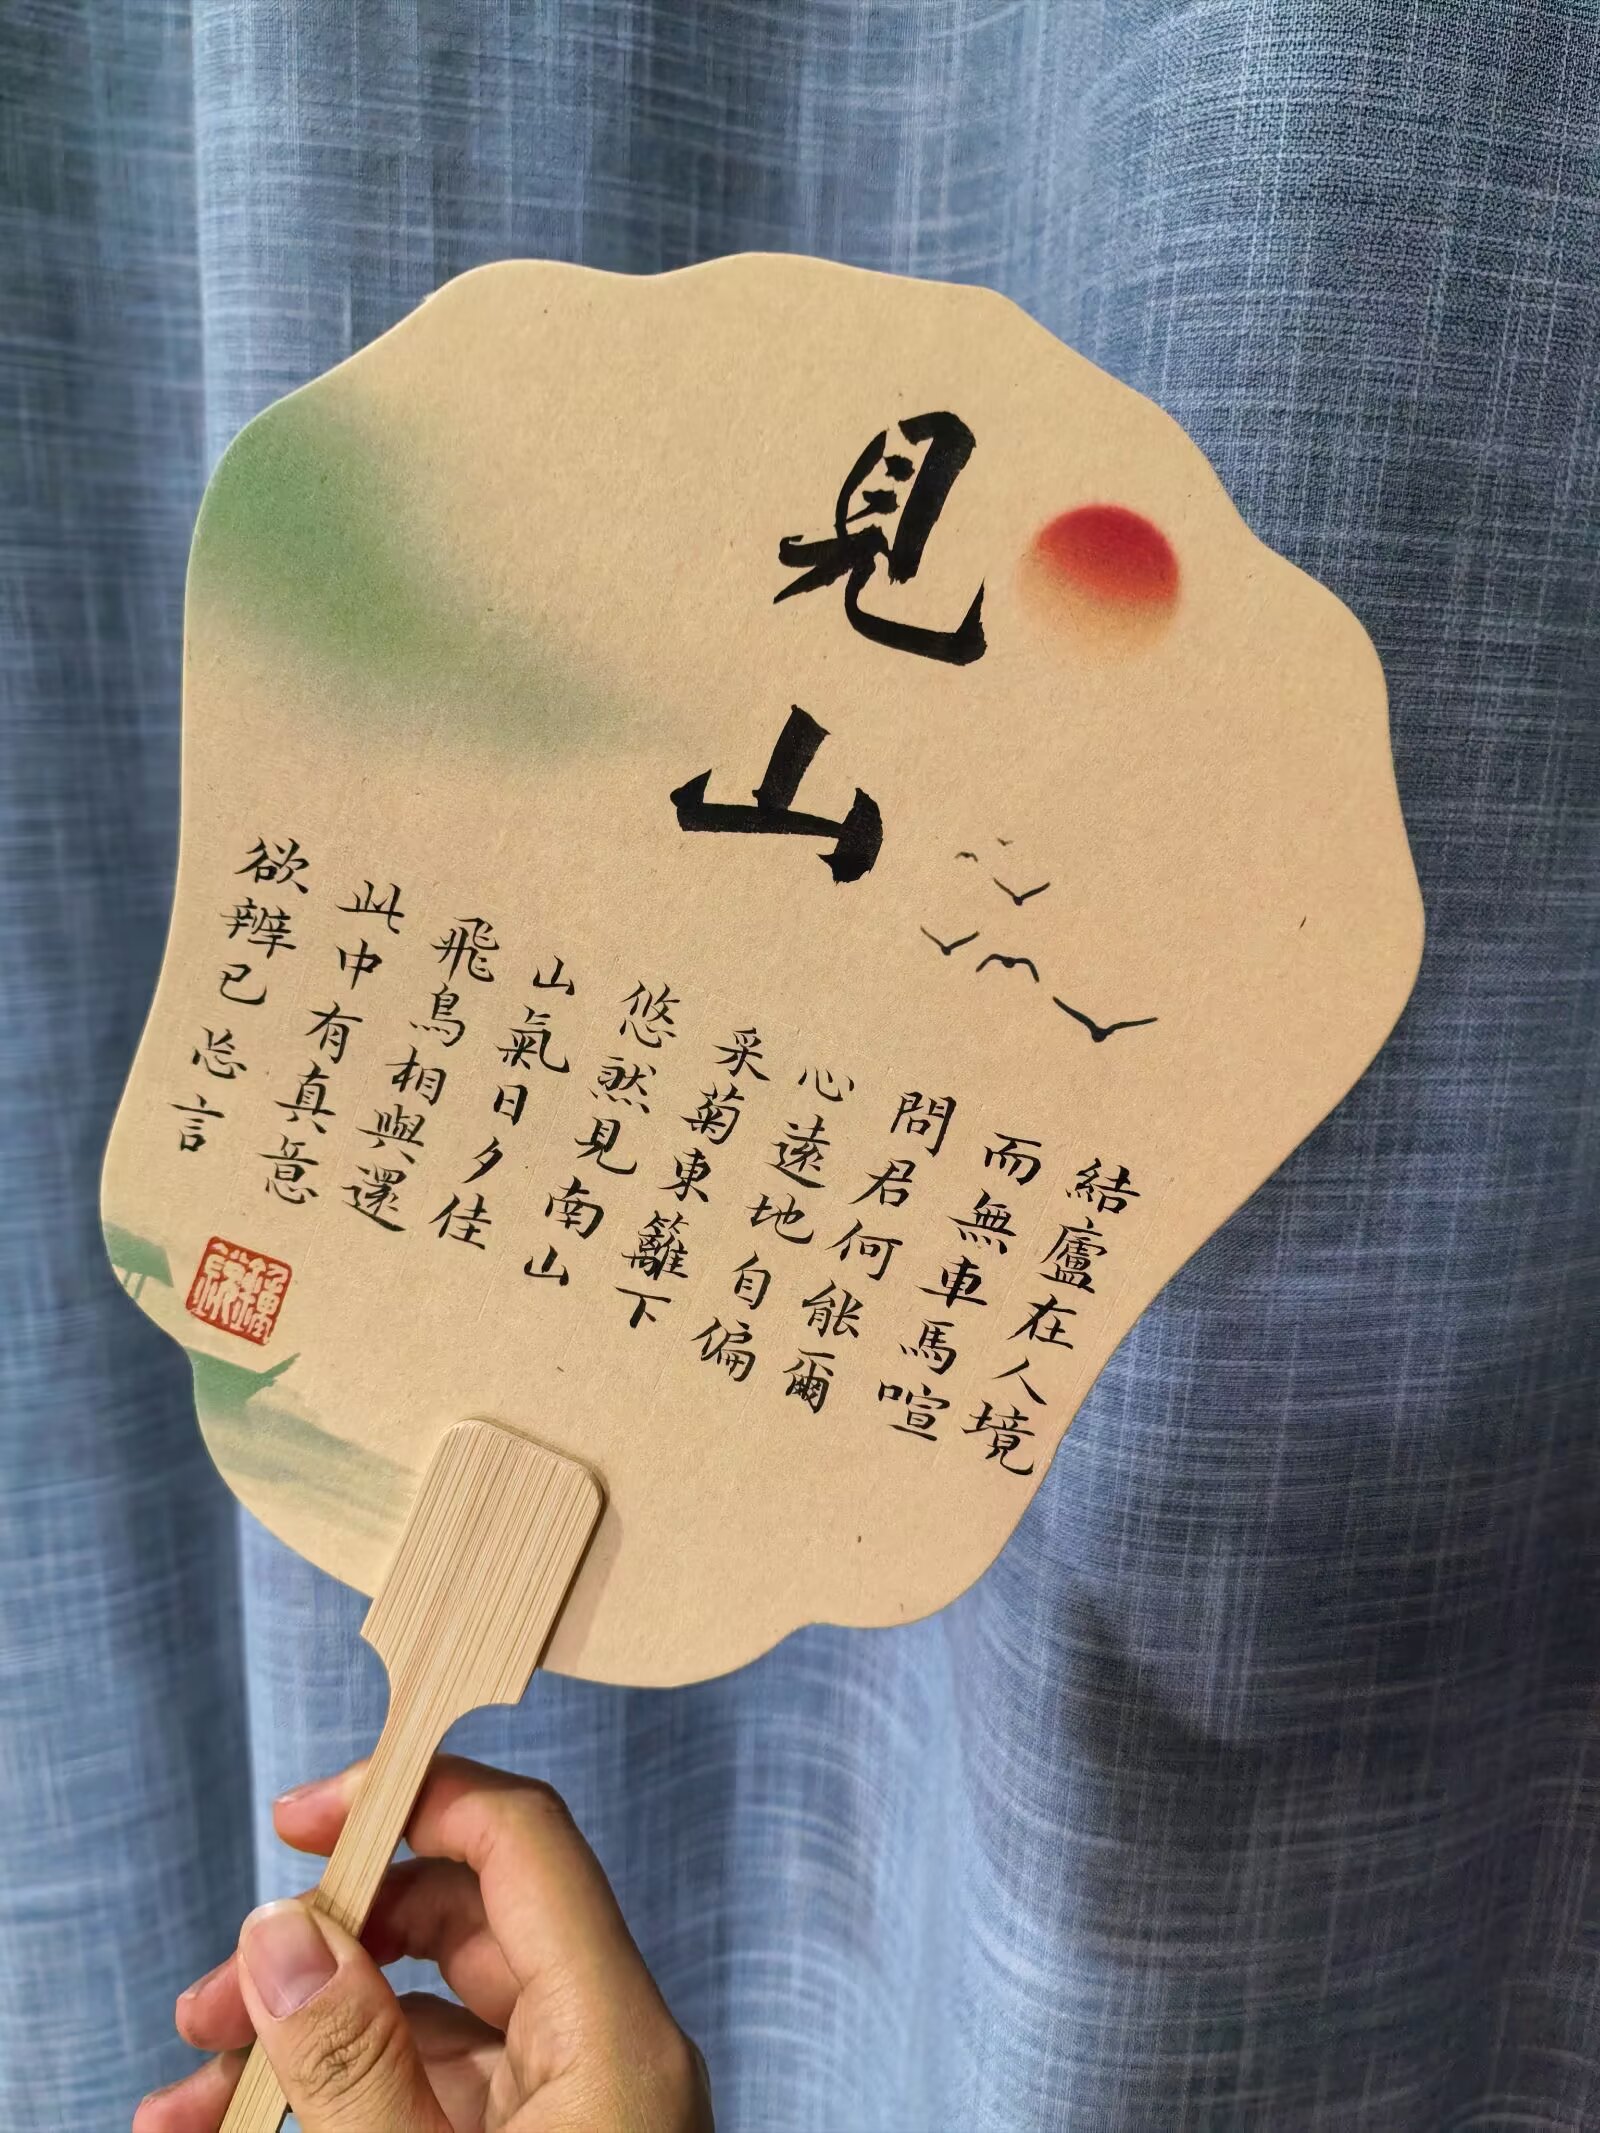 見山
結廬在人境
而無車馬喧
問君何能爾
心遠地自偏
采菊東籬下
悠然見南山
山氣日夕佳
飛鳥相與還
此中有真意
欲辨已忘言